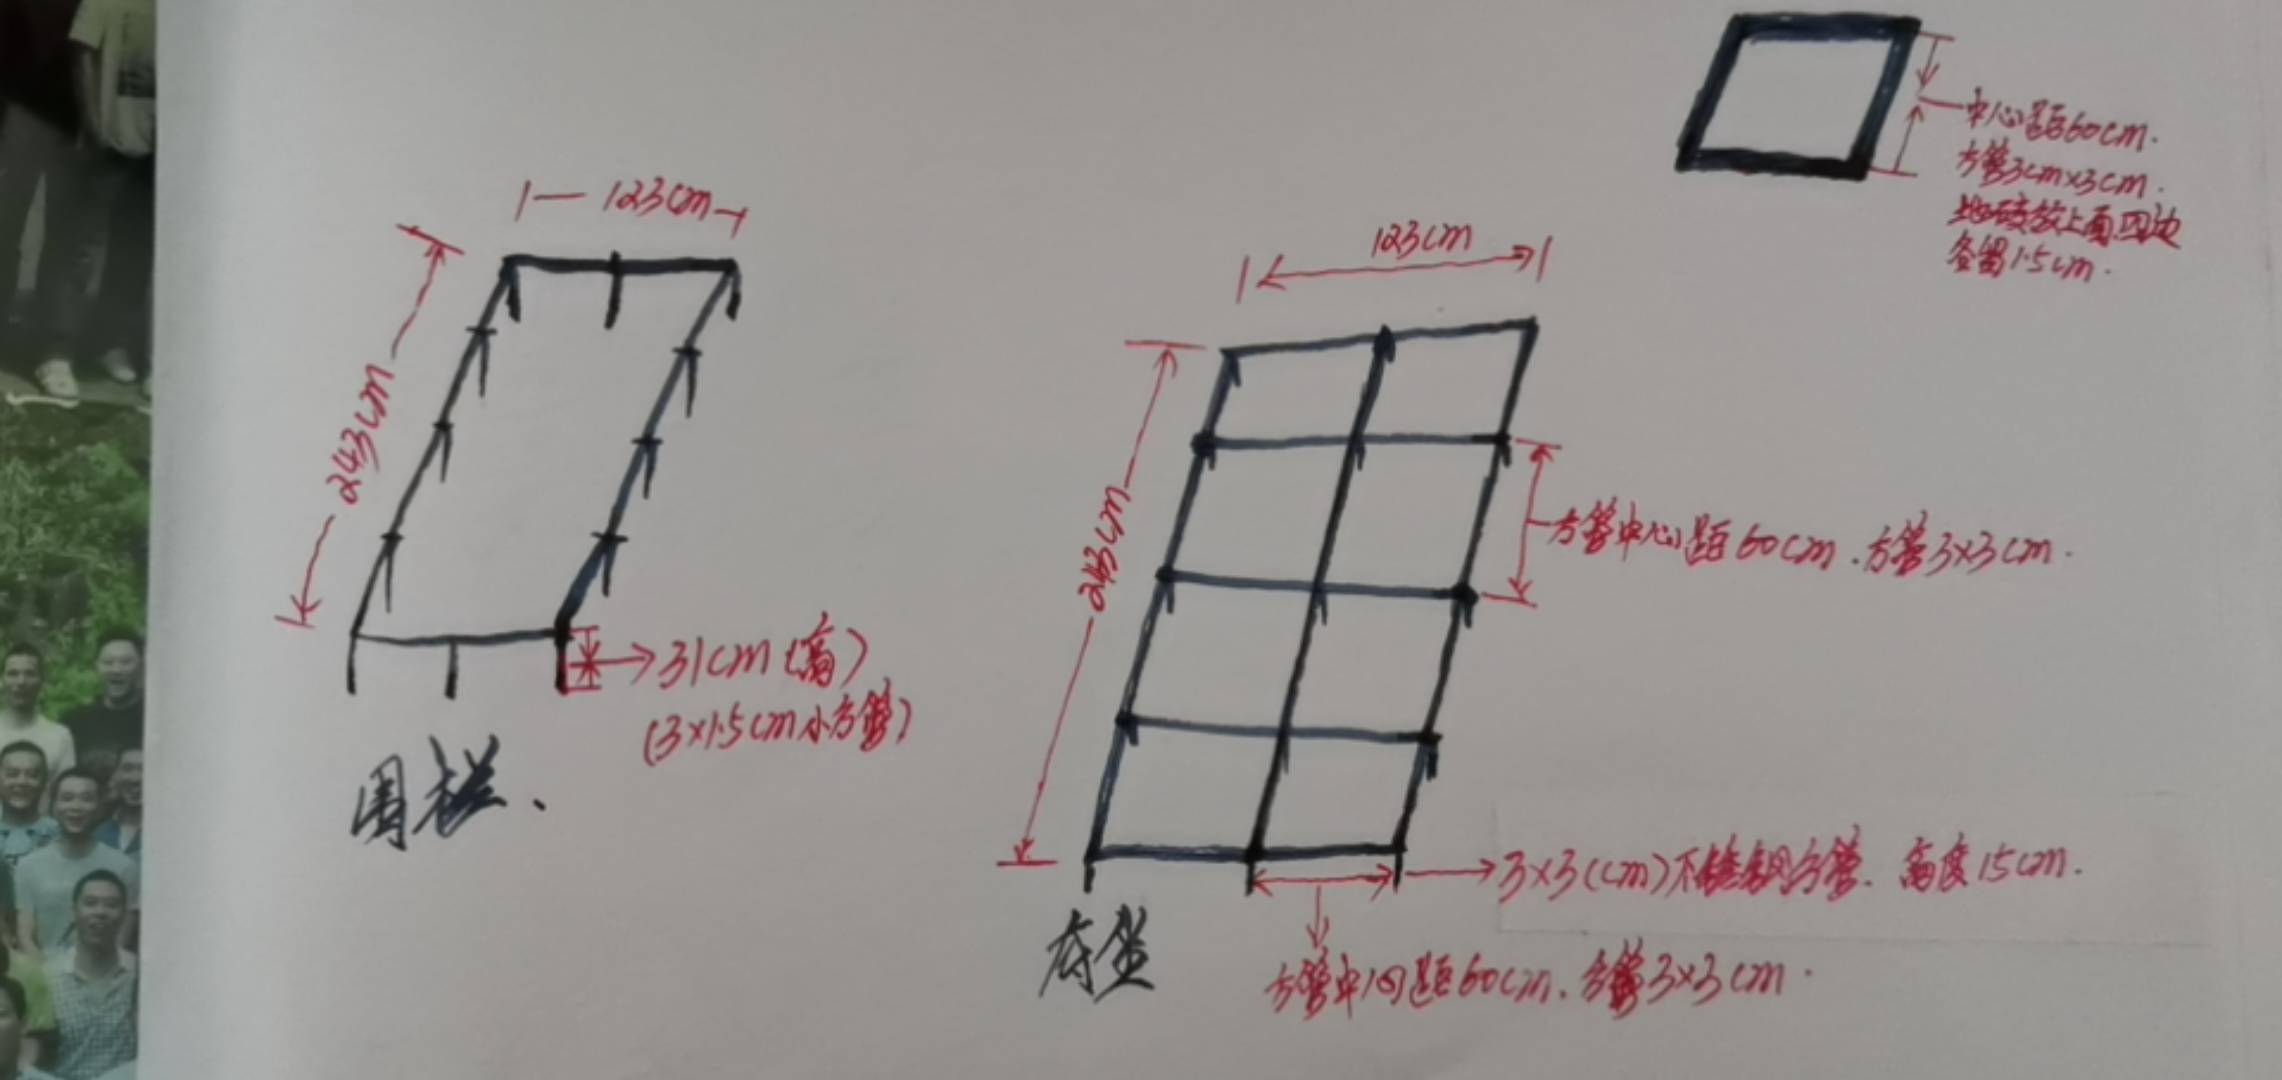 123cm
243cm
31cm(高)
(3×1.5cm小方管)
围栏、
123cm
243cm
方管中心距60cm.方管3×3cm.
3×3(cm)不锈钢方管.高度15cm.
方管中心距60cm.方管3×3cm.
底坐
中心距60cm.
方管3cm×3cm.
地砖放上面四边
各留1.5cm.